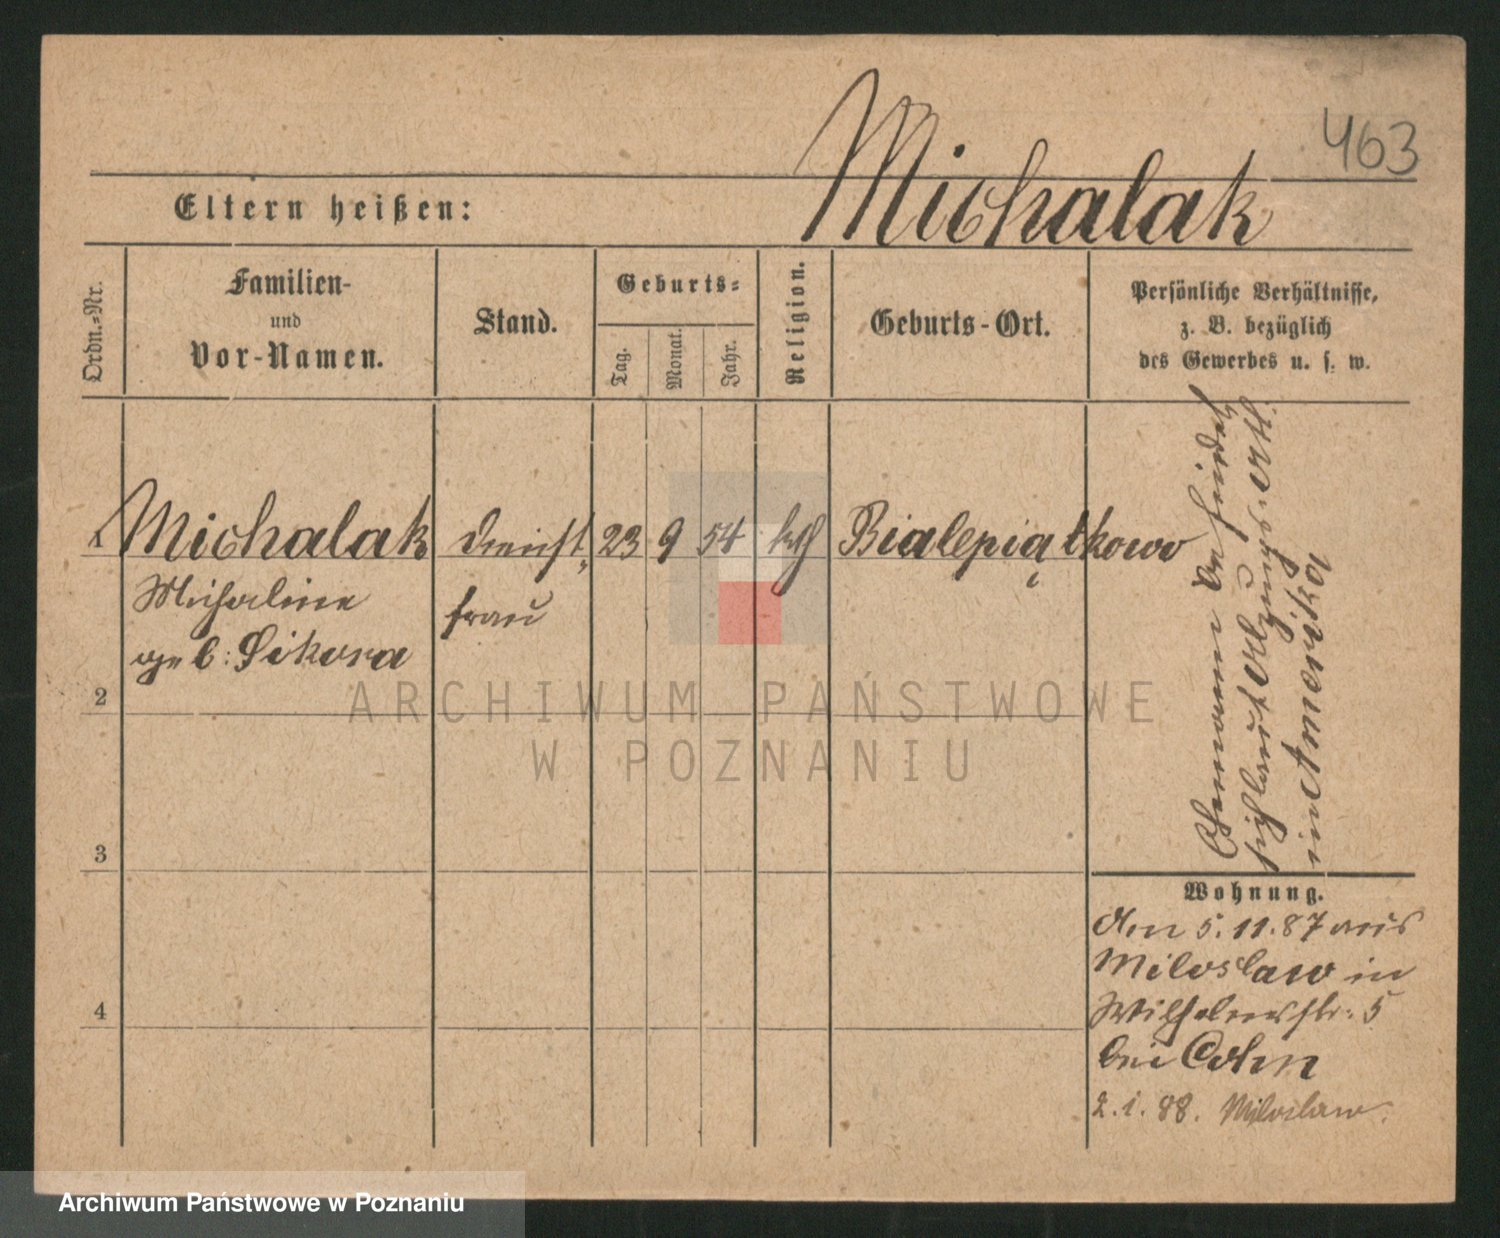 463
Michalak
Eltern heißen:
Ordn.-Nr.
Familien-
und
Vor-Namen.
Stand.
Geburts-
Tag.
Monat.
Jahr.
Religion.
Geburts-Ort.
Persönliche Verhältnisse,
z. B. bezüglich
des Gewerbes u. s. w.
1 Michalak Dienst- 23 9 54 kth Bialepiątkowo
Michaline frau
geb: Sikora
2
3
4
Ehemann befindet
sich laut Abzugs-Att.
in Amerika
Wohnung.
Am 5.11.87 aus
Miloslaw in
Wilhelmsstr: 5
bei Cohn
2.1.88. Miloslaw.
ARCHIWUM PAŃSTWOWE
W POZNANIU
Archiwum Państwowe w Poznaniu